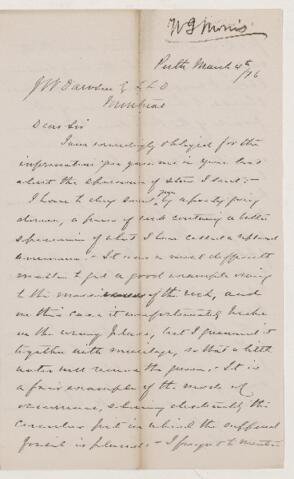 W G Morris
Perth March 4th
/76
J W Dawson Esq L L D
Montreal
Dear Sir
I am exceedingly obliged for the
information you gave me in your last
about the specimen of stone I sent:-
I have to day sent you, by
a piece of rock containing a better
specimen of what I have called a
It is a most difficult
matter to get a good example owing
to the of the rock, and
in this case it unfortunately broke
in the wrong place, but I gummed it
together with mucilage, so that a little
water will remove the It is
a fair example of the mode of
occurrence, showing distinctly the
circular pit in which the supposed
fossil is placed - I forgot to mention